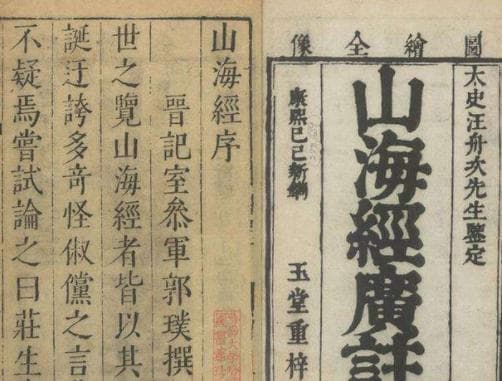 圖繪全像
太史汪舟次先生鑒定
山海經廣註
康熙己巳新鐫
玉堂重梓
山海經序
晉記室叅軍郭璞撰
世之覽山海經者皆以其
誕迂誇多奇怪俶儻之言
不疑焉嘗試論之曰莊生